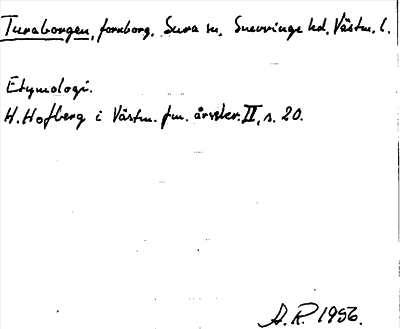 Turaborgen, fornborg. Sura sn, Snevringe hd, Västm. l.
Etymologi.
H. Hofberg i Västm. fm. årsskr. II, s. 20.
A.R. 1956.